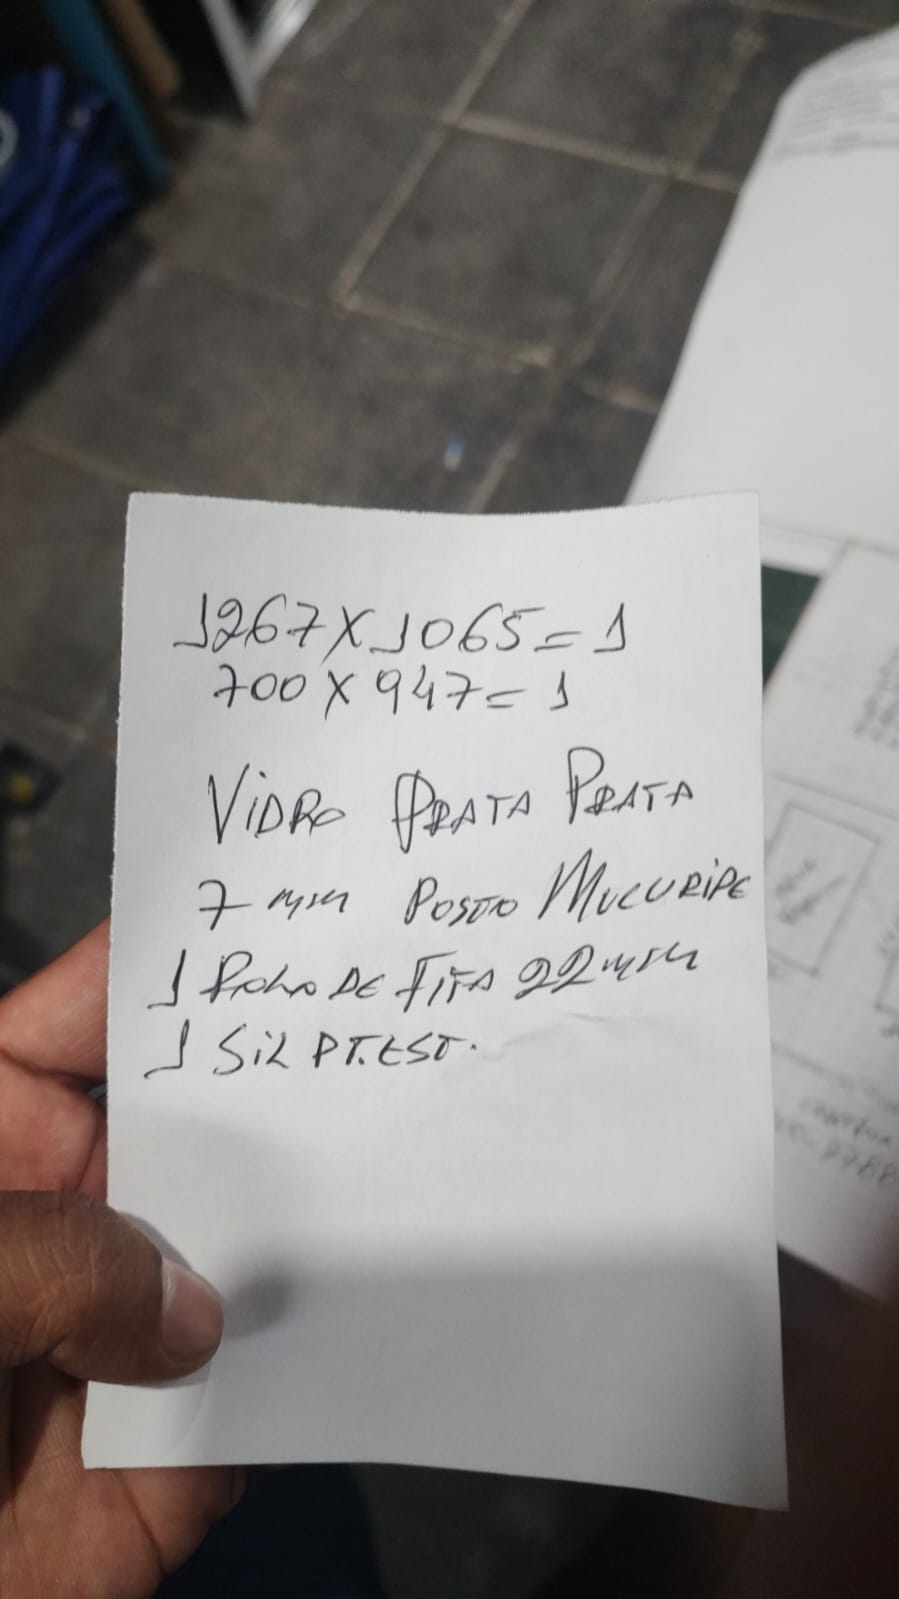 1267X1065=1
700X947=1
VIDRO PRATA PRATA
7mm POSTO MUCURIPE
1 ROLO DE FITA 22mm
1 SIL PT.EST.